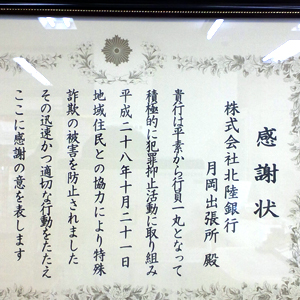 感謝状
株式会社北陸銀行
月岡出張所 殿
貴行は平素から行員一丸となって
積極的に犯罪抑止活動に取り組み
平成二十八年十月二十一日
地域住民との協力により特殊
詐欺の被害を防止されました
その迅速かつ適切な行動をたたえ
ここに感謝の意を表します